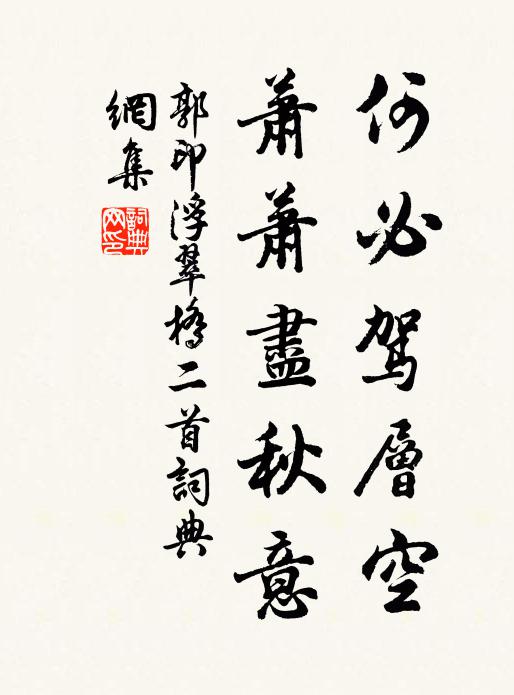 何必駕層空
蕭蕭盡秋意
郭印浮翠橋二首詞典
網集
詞典
网印